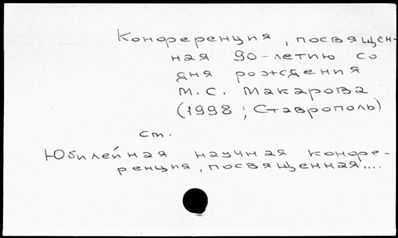 Конференция, посвящен-
ная 90-летию со
дня рождения
М.С. Макарова
(1998; Ставрополь)
см.
Юбилейная научная конфе-
ренция, посвященная....